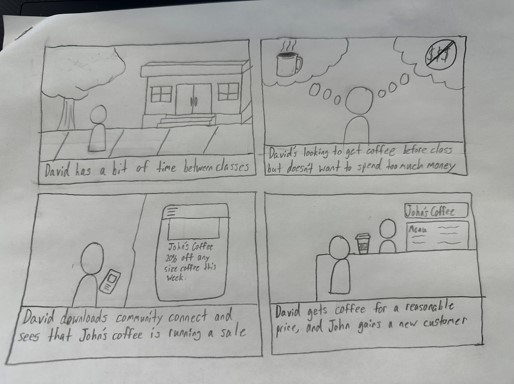 David has a bit of time between classes
$$$
David's looking to get coffee before class
but doesn't want to spend too much money
John's Coffee
20% off any
size coffee this
week
David downloads community connect and
sees that John's coffee is running a sale
John's Coffee
Menu
David gets coffee for a reasonable
price, and John gains a new customer